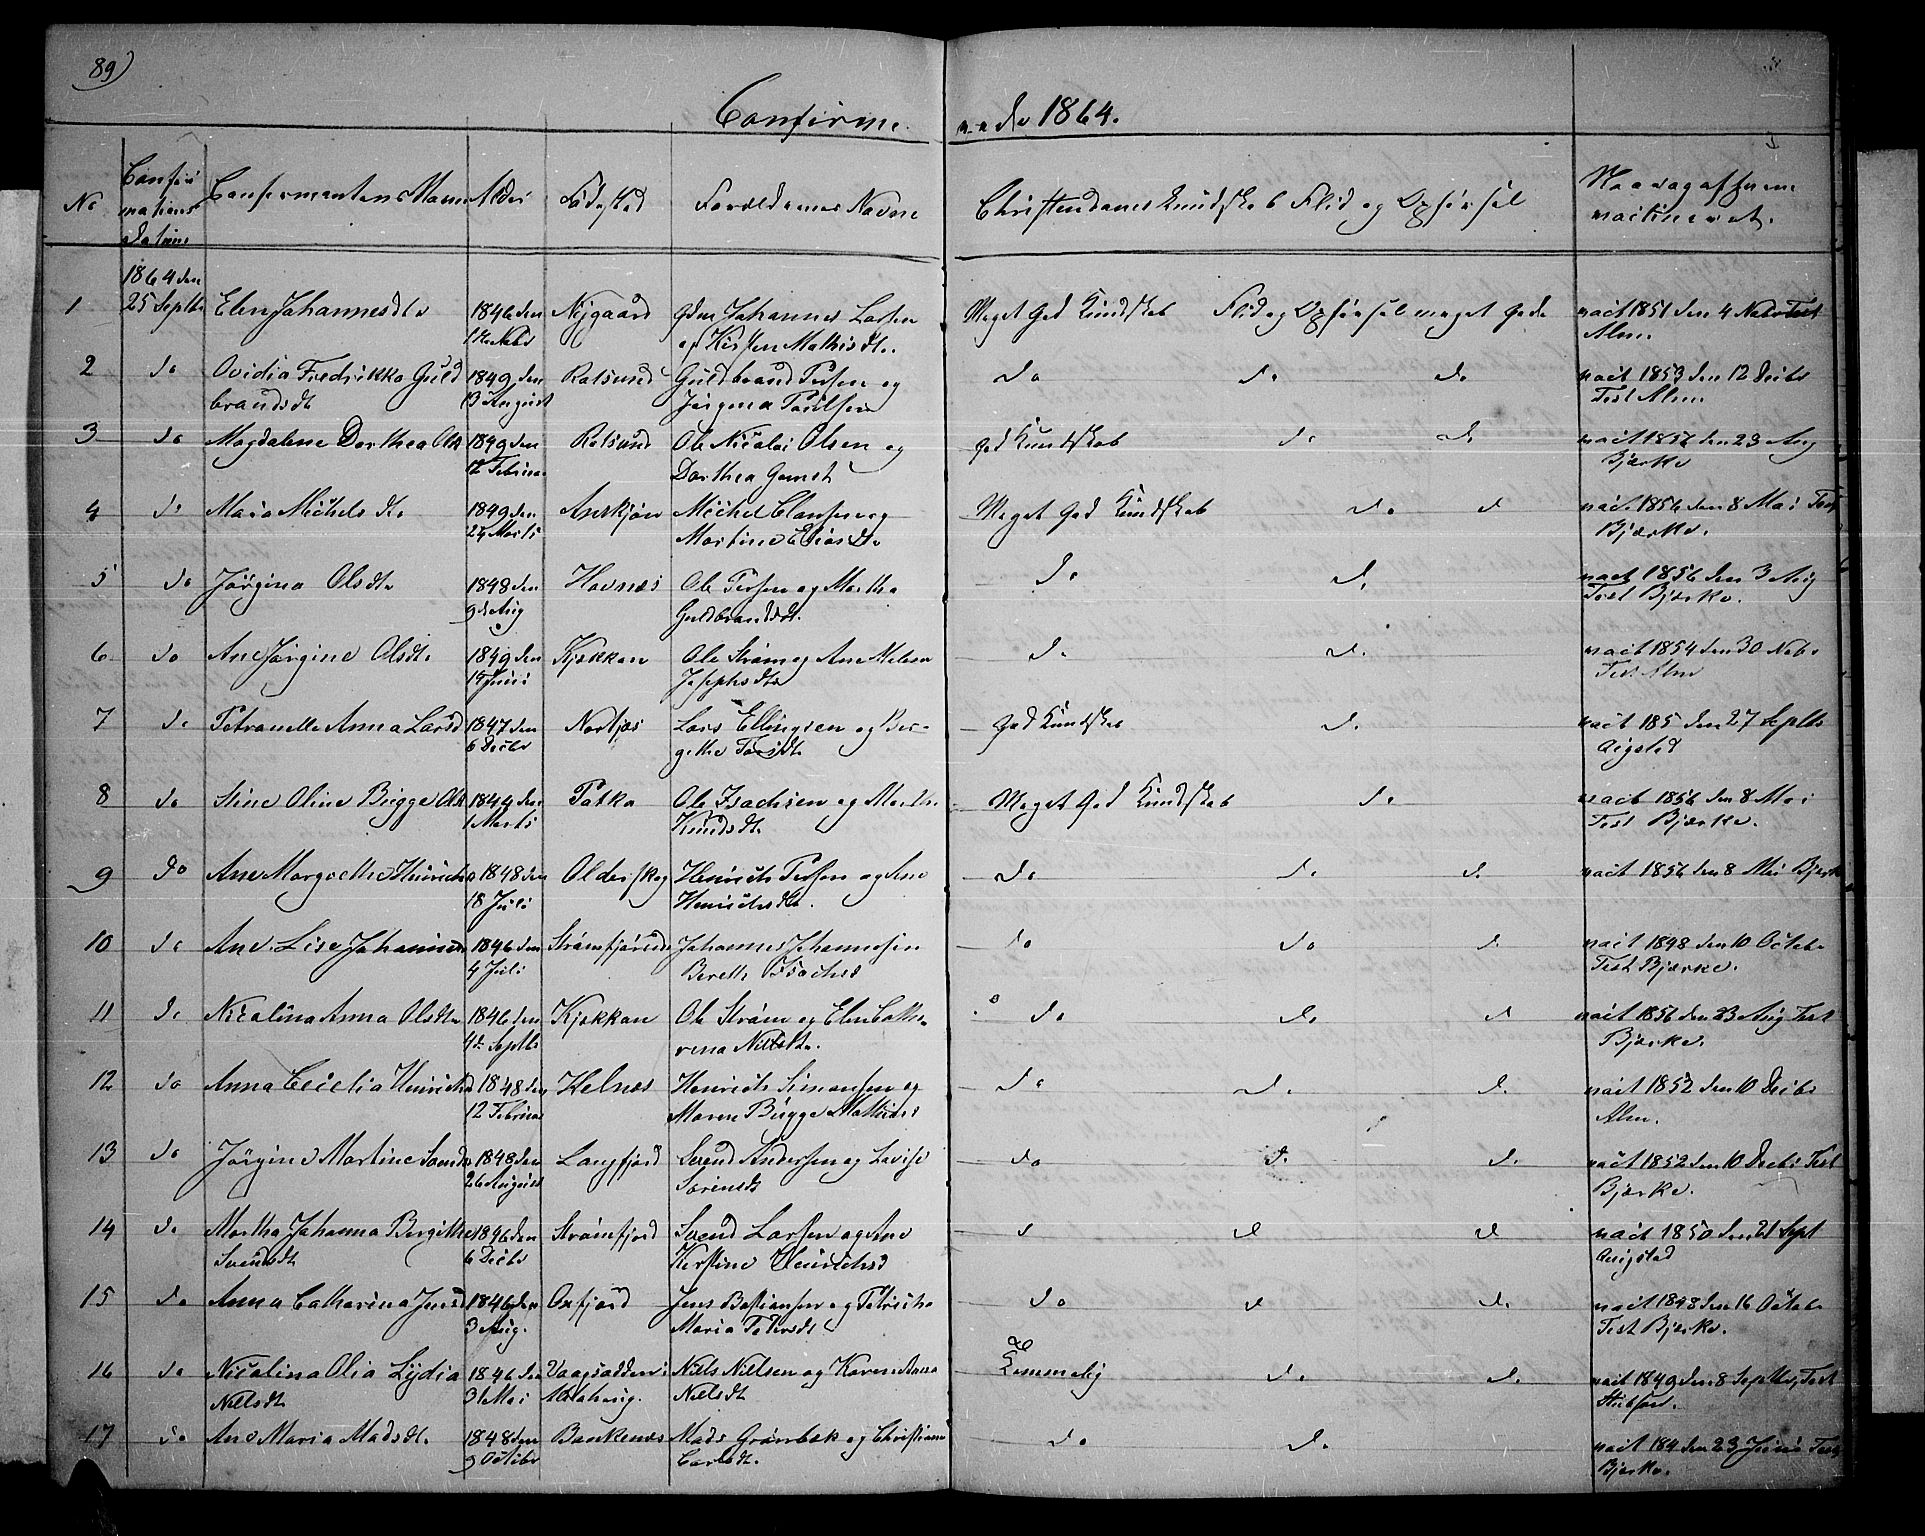 89)
Confirme rede 1864.
No
Confir
mations
datum
Confermantens Navn
Alder
Fødested
Forældrenes Navne
Christendoms Kundskab Flid og Opførsel
Naar og af hvem
vaccineret.
1
1864 den
25 Septbr
Elen Johannesdtr
1846 den
Nov
Nygaard
Johannes Larsen
og Kirsten Mathisdtr.
Meget God Kundskab Flid og Opførsel meget gode
vacit 1851 den 4 Nobr Test
Alm.
2 do Ovidia Fredrikke Guld
brandsdt
1849 den
13 August
Rotsund
Guldbrand Persen og
Jørgina Poulsen
do do do
vacit 1853 den 12 Decbr
Test Alm.
3 do Magdalene Dorthea Ols
1849 den
12 Februar
Rotsund
Ole Nicolai Olsen og
Dorthea
god Kundskab do do
vacit 1856 den 23 Aug
Bjerke
4 do Maria Michelsdtr
1849 den
24 Marts
Michel Clausen og
Martine Eliasdtr
Meget God Kundskab do do
vacit 1856 den 8 Mai Test
Bjerke.
5 do Jørgina Olsdtr
1848 den
9de Aug
Havnæs
Ole Persen og Martha
Guldbrandsdt.
do do
vacit 1856 den 3 Aug
Test Bjerke.
6 do Ane Jørgine Olsdtr
1849 den
Juni
Kjækkan
Ole Strøm og Ane Malena
Josephsdtr
do do
vacit 1854 den 30 Nobr
Test Alm
7 do Petronelle Anna Larsd
1847 den
6 Decbr
Lars Ellingsen og Ber-
gethe
God Kundskab do
vacit 185 den 27 Septbr
Aigstad
8 do Stine Oline Bugge Ols
1849 den
1 Marts
Potka
Ole Isachsen og Marthe
Knudsdt.
Meget God Kundskab do
vacit 1856 den 8 Mai
Test Bjerke.
9 do Ane Margrethe Heinrichs
1848 den
18 Juli
Olderskog
Henrich Persen og Ane
Henrichsdtr.
do do do
vacit 1856 den 8 Mai Bjerk
10 do Ane Lise Johannesd
1846 den
4 Juli
Strømfjorden
Johannes Johannesen
Bereth Isachsd
do do do
vacit 1848 den 10 Octobr
Test Bjerke.
11 do Nicolina Anna Olsdtr
1846 den
4de Septbr
Kjækkan
Ole Strøm og Elen Catha
rina Nielsdt.
do do do
vacit 1856 den 23 Aug Test
Bjerke.
12 do Anna Cecilia Henrichsd
1848 den
12 Februar
Helnæs
Henrich Simonsen og
Maren Bugge Mathiasd
do do do
vacit 1852 den 10 Decbr
Alm.
13 do Jørgine Martine Svends
1848 den
26 August
Langfjord
Svend Andersen og Lovise
Sørensdt
do do do
vacit 1852 den 10 Decbr Test
Bjerke.
14 do Martha Johanna Bergithe
Svendsdt
1846 den
6 Decbr
Strømfjord
Svend Larsen og Ane
Kirstine Henrichsd
d d d
vacit 1850 den 21 Sept
Aigstad
15 do Anna Catharina Jensd
1846 den
3 Aug.
Oxfjord
Jens Bastiansen og
Maria Petersdt
do d d.
vacit 1848 den 16 Octobr
Test Bjerke.
16 do Nicolina Olia Lydia
Nielsdt
1846 den
3 Mai
Niels Nielsen og Karen Anna
Nielsdt
Temmelig do do
vacit 1849 den 8 Septbr, Test
17 do Ane Maria Madsdt.
1848 den
9 Octobr
Bankenæs
Mads Grønbæk og Christiane
Carlsdt.
do do
vacit 184 den 23 Juni Test
Bjerke.